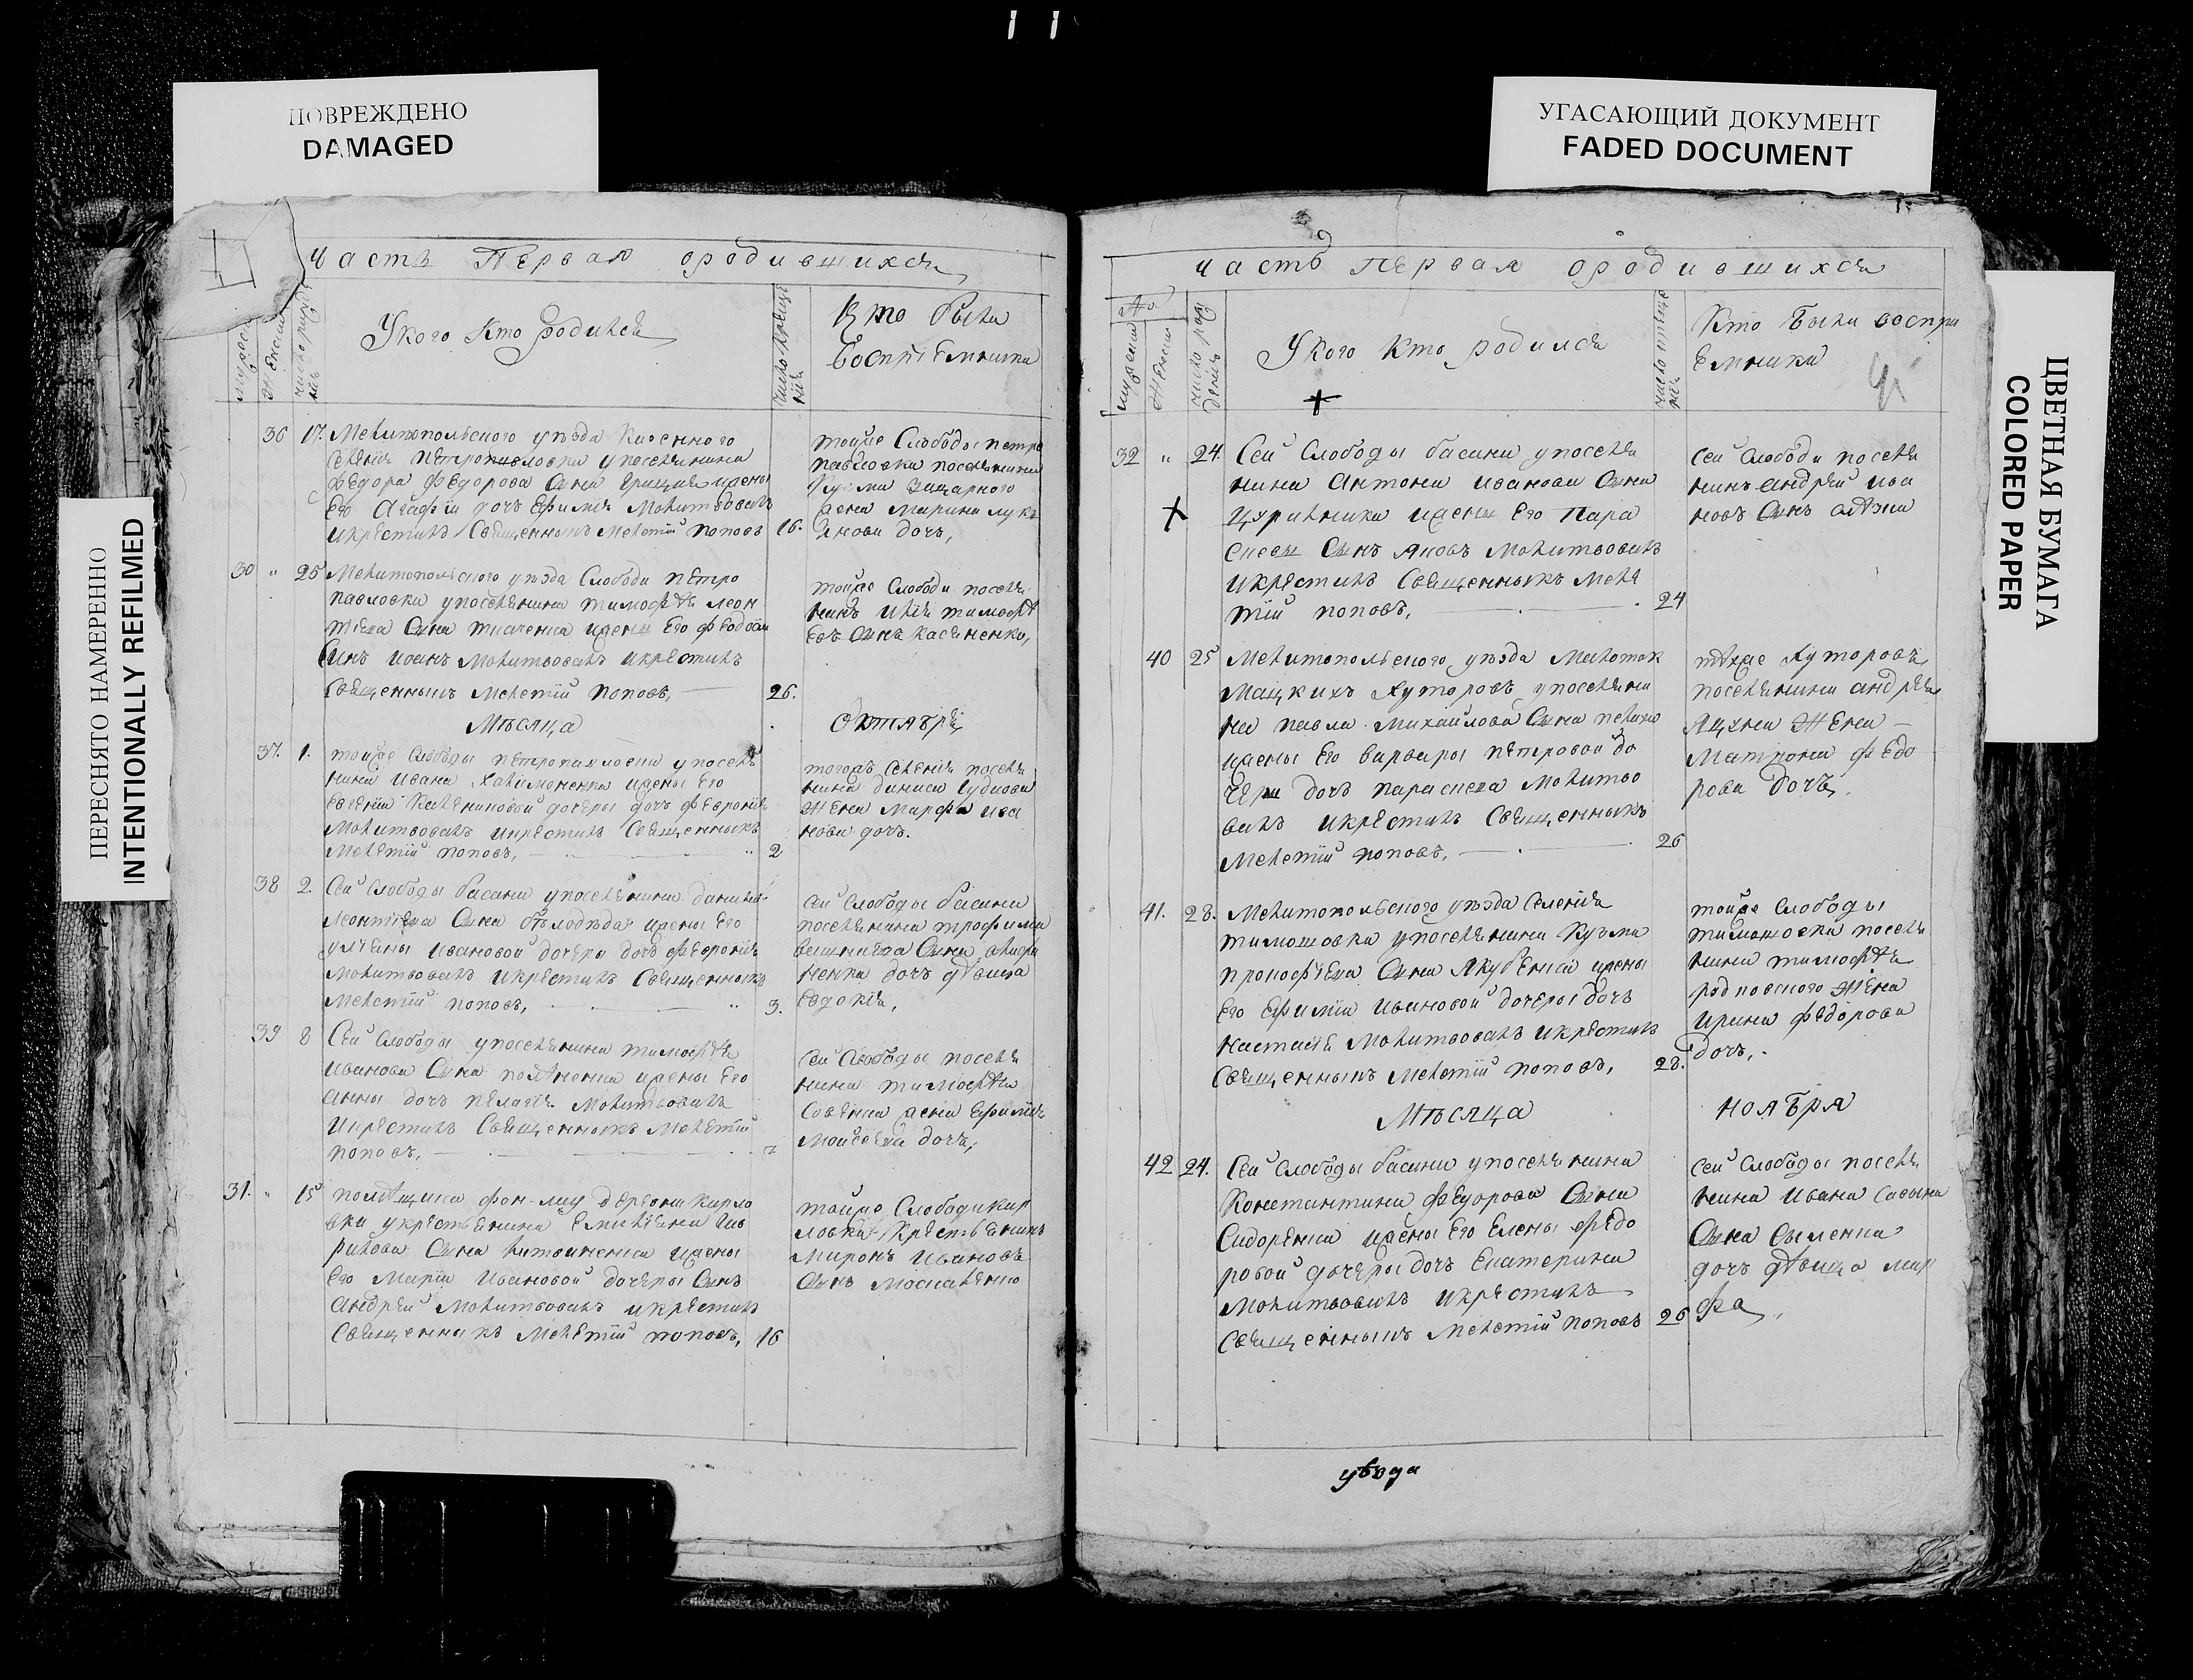 ПОВРЕЖДЕНО
DAMAGED
УГАСАЮЩИЙ ДОКУМЕНТ
FADED DOCUMENT
ПЕРЕСНЯТО НАМЕРЕННО
INTENTIONALLY REFILMED
ЦВЕТНАЯ БУМАГА
COLORED PAPER
часть Первая ородившихся
женска
число
Укого Кто родился
число крещения
Кто были
воспрiемники
36 17. Мелитопольского уѣзда Казенного
селенiя петропавловки упоселянина
федора федорова сына жены
его Агафiи дочь Ефимiя Молитвовалъ
икрестилъ Священникъ Мелетiй поповъ 16.
тойже Слободы петро
павловки поселянина
Кузми
жена Марина лукi
янова дочь,
30 " 25 Мелитопольского уѣзда Слободы петро
павловки упоселянина тимофѣя леон
тiева Сына ткаченка жены Его феодосiи
Сынъ иоанъ Молитвовалъ икрестилъ
Священникъ Мелетiй поповъ, 26.
тойже Слободы поселя
нинъ Илiя тимофѣ
евъ Сынъ касяненко,
Мѣсяца октября
37. 1. тойже Слободы петропавловки упоселя
нина Ивана жены Его
Евгенiи дочеры дочь феврониiя
Молитвовалъ икрестилъ Священникъ
Мелетiй поповъ, 2
тогожъ Селенiя поселя
нина даниса
жена Марфа ива
нова дочь.
38 2. Сей Слободы басани упоселянина данила
леонтiева Сына бѣлодѣда жены Его
улiяны Ивановой дочеры дочь феврониiя
Молитвовалъ икрестилъ Священникъ
Мелетiй поповъ, 3.
сей Слободы басани
поселянина трофима
Сына
ненка дочь дѣвица
Евдокiя,
39 8 Сей Слободы упоселянина тимофѣя
иванова Сына жены Его
Анны дочь пелагiя Молитвовалъ
икрестилъ Священникъ Мелетiй
поповъ,
сей Слободы поселя
нина тимофѣя
жена Ефимiя
Моисеева дочь,
31. " 15 помѣщика фон-лиц деревни кирло
вки укрестьянина Емилiяна гав
рилова Сына литвиненка жены
Его Марiи Ивановой дочеры Сынъ
Андрей Молитвовалъ икрестилъ
Священникъ Мелетiй поповъ, 16
тойже Слободи кир
ловки Крестьянинъ
Миронъ Ивановъ
Сынъ Москаленко
часть первая ородившихся
мужеска
женска
число рож
денiя
Укого Кто родился
число креще
нiя
Кто были воспрi
емники
32 " 24. Сей Слободы басани упоселя
нина Антона иванова Сына
жены Его Пара
скевы Сынъ Яковъ Молитвовалъ
икрестилъ Священникъ Меле
тiй поповъ, 24
сей Слободи поселя
нинъ Андрей ива
новъ Сынъ
40 25 Мелитопольского уѣзда Малоток
мацкихъ Хуторовъ упоселяни
на павла Михайлова Сына
жены Его варвары петровой до
чери дочь параскева Молитво
валъ икрестилъ Священникъ
Мелетiй поповъ, 26
тѣхже Хуторовъ
поселянина андрея
Яцуна Жена
Матрона федо
рова дочь,
41. 28. Мелитопольского уѣзда Селенiя
тимошовки упоселянина Кузма
прокофiева Сына Якубенка жены
Его Ефимiи Ивановой дочеры дочь
настасiя Молитвовалъ икрестилъ
Священникъ Мелетiй поповъ, 28.
тойже Слободы
тимошовки поселя
нина тимофѣя
Жена
ирина федорова
дочь,
Мѣсяца ноября
42 24. Сей Слободы басани упоселянина
Константина федорова Сына
Сидоренка жены Его Елены федо
ровой дочеры дочь Екатерина
Молитвовалъ икрестилъ
Священникъ Мелетiй поповъ 26
сей Слободы поселя
нина ивана
Сына
дочь дѣвица мар
фа,
уѣзда